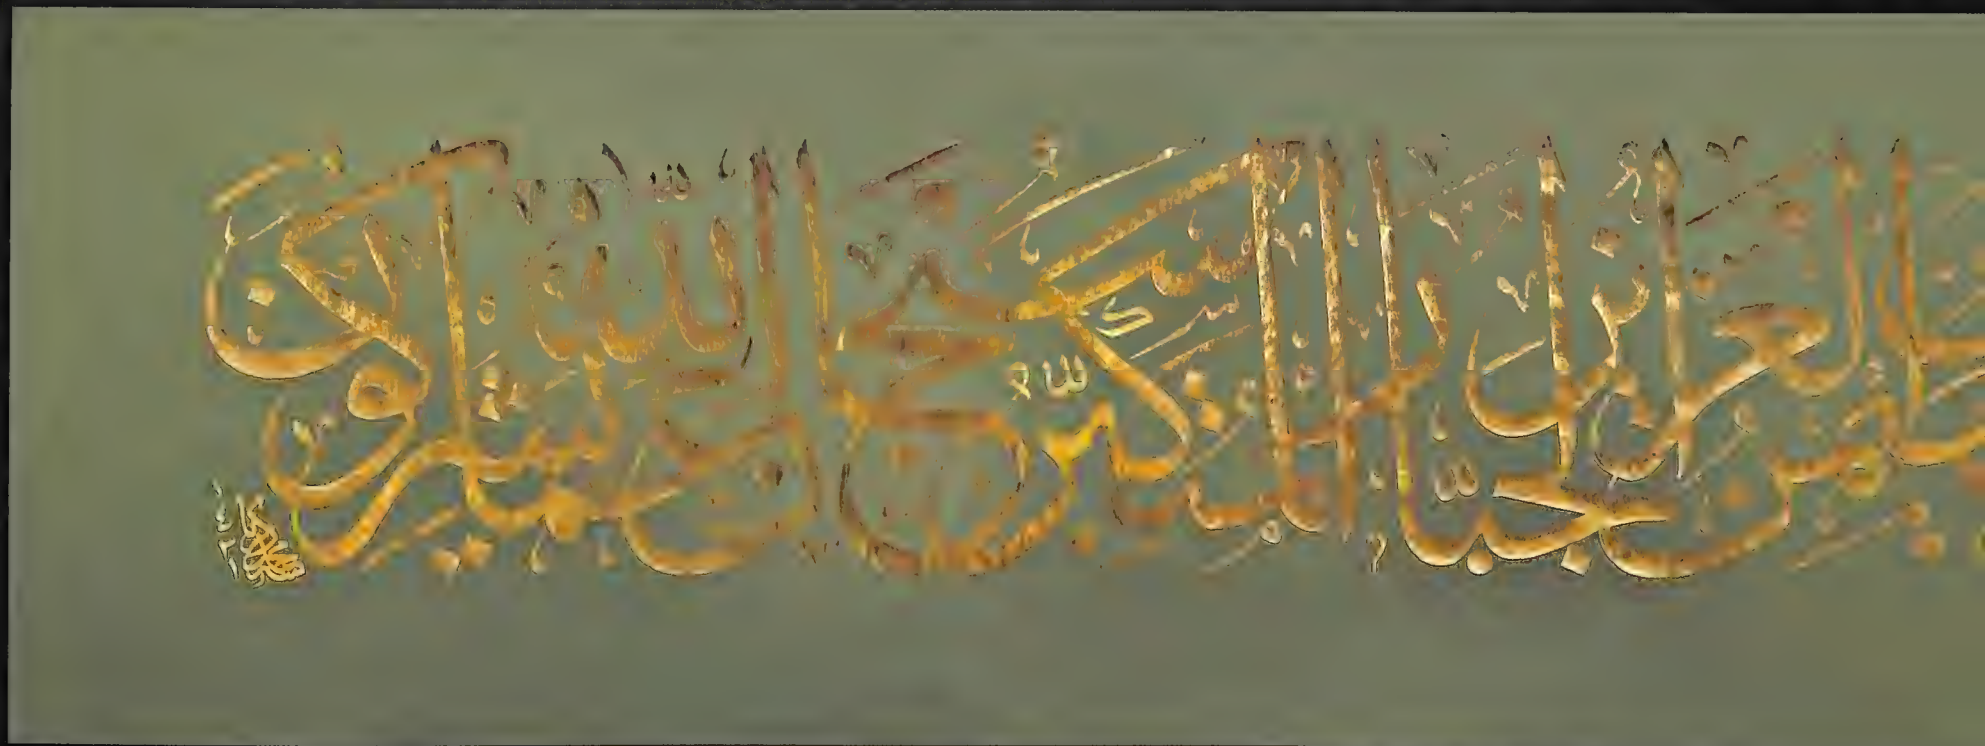 العزيز الجبار المتكبر سبحان الله عما يشركون